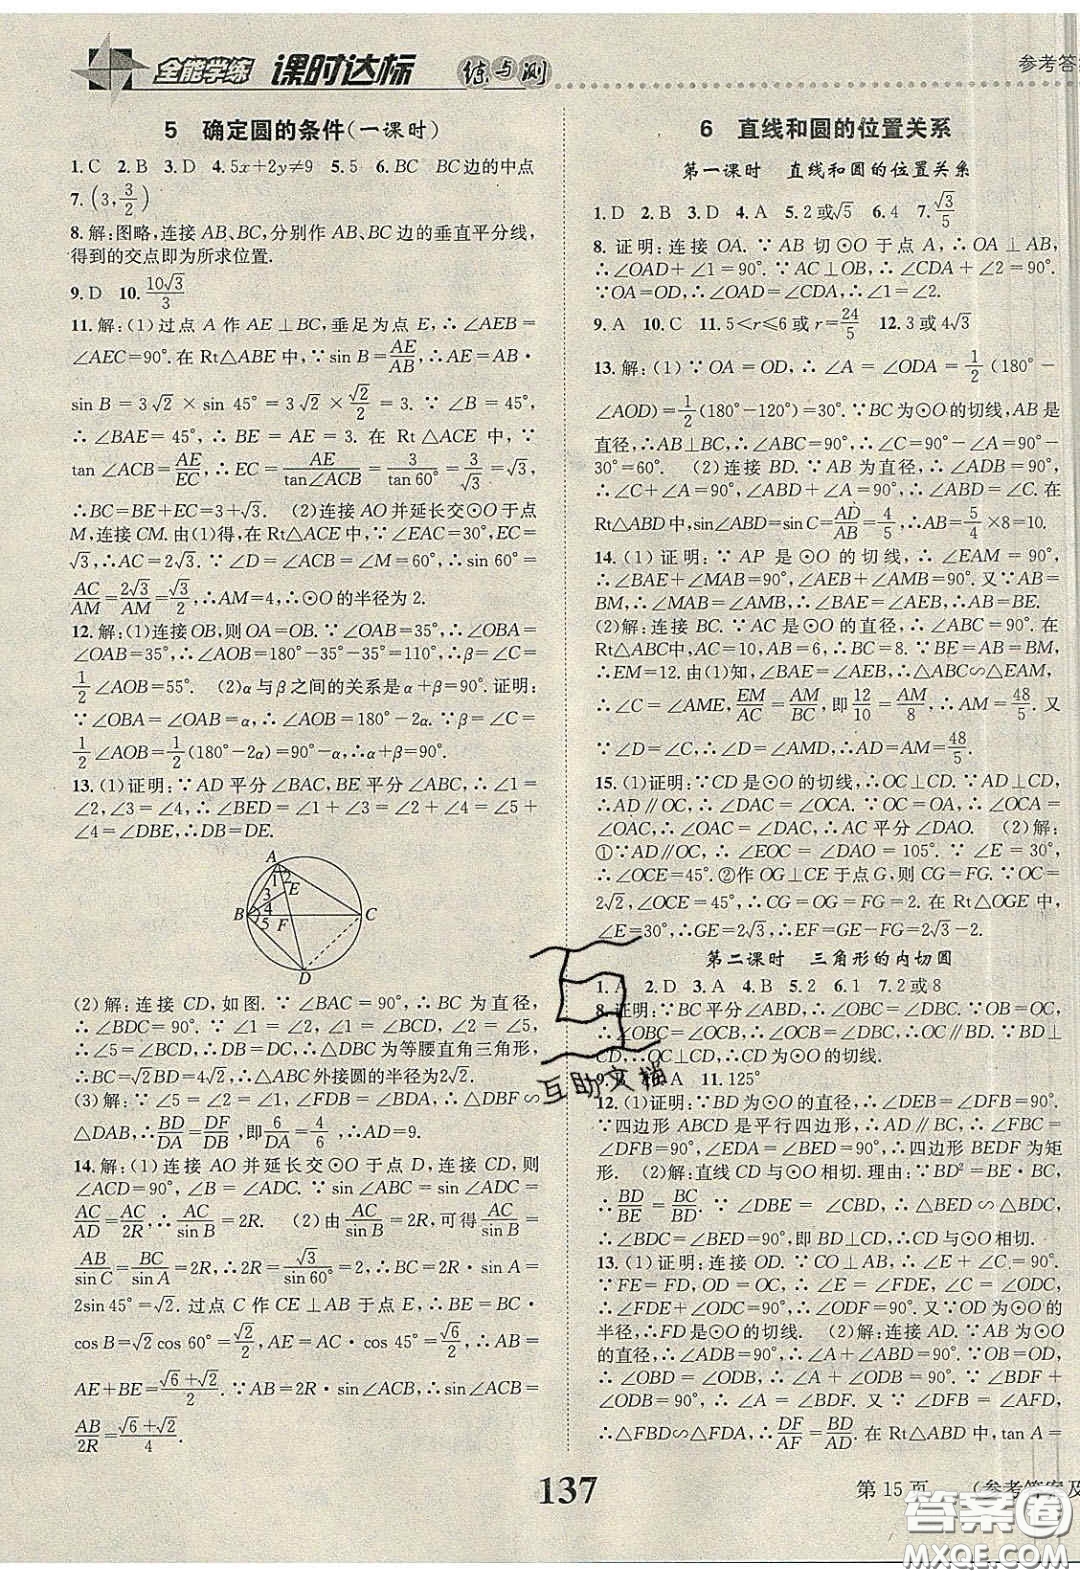 全能学练 课时达标 练与测
参考答
5 确定圆的条件(一课时)
1.C 2.B 3.D 4.5x+2y≠9 5.5 6.BC BC边的中点
7.(3,3/2)
8.解:图略,连接AB、BC,分别作AB、BC边的垂直平分线,
得到的交点即为所求位置.
9.D 10.10√3/3
11.解:(1)过点A作AE⊥BC,垂足为点E,∴∠AEB=
∠AEC=90°.在Rt△ABE中,∵sin B=AE/AB,∴AE=AB·
sin B=3√2×sin 45°=3√2×√2/2=3.∵∠B=45°,
∴∠BAE=45°,∴BE=AE=3.在Rt△ACE中,∵
tan∠ACB=AE/EC,∴EC=AE/tan∠ACB=3/tan60°=3/√3=√3,
∴BC=BE+EC=3+√3. (2)连接AO并延长交⊙O于点
M,连接CM.由(1)得,在Rt△ACE中,∵∠EAC=30°,EC=
√3,∴AC=2√3.∵∠D=∠ACB=60°,∴sin∠D=sin60°=
AC/AM=2√3/AM=√3/2,∴AM=4,∴⊙O的半径为2.
12.解:(1)连接OB,则OA=OB.∵∠OAB=35°,∴∠OBA=
∠OAB=35°,∴∠AOB=180°-35°-35°=110°,∴β=∠C=
1/2∠AOB=55°. (2)α与β之间的关系是α+β=90°.证明:
∵∠OBA=∠OAB=α,∴∠AOB=180°-2α.∵β=∠C=
1/2∠AOB=1/2(180°-2α)=90°-α,∴α+β=90°.
13.(1)证明:∵AD平分∠BAC,BE平分∠ABC,∴∠1=
∠2,∠3=∠4,∴∠BED=∠1+∠3=∠2+∠4=∠5+
∠4=∠DBE,∴DB=DE.
A
1 2
3 E
B 4 C
5 F
D
(2)解:连接CD,如图.∵∠BAC=90°,∴BC为直径,
∴∠BDC=90°.∵∠1=∠2,∠1=∠BCD,∠2=∠5,
∴∠5=∠BCD,∴DB=DC,∴△DBC为等腰直角三角形,
∴BC=√2BD=4√2,∴△ABC外接圆的半径为2√2.
(3)解:∵∠5=∠2=∠1,∠FDB=∠BDA,∴△DBF∽
△DAB,∴BD/DA=DF/DB,即6/DA=4/6,∴DA=9.
14.解:(1)连接AO并延长交⊙O于点D,连接CD,则
∠ACD=90°,∠B=∠ADC.∵sin∠ABC=sin∠ADC=
AC/AD=AC/2R,∴AC/sin B=2R. (2)由AC/sin B=2R,可得AC/sin B=
AB/sin C=BC/sin A=2R,∴2R=√3/sin 60°=2,∴BC=2R·sin A=
2sin 45°=√2.过点C作CE⊥AB于点E,∴BE=BC·
cos B=√2cos 60°=√2/2,AE=AC·cos 45°=√6/2,∴AB=
AE+BE=(√6+√2)/2.∵AB=2R·sin∠ACB,∴sin∠ACB=
AB/2R=(√6+√2)/4.
6 直线和圆的位置关系
第一课时 直线和圆的位置关系
1.D 2.B 3.D 4.A 5.2或√5 6.4 7.√3/5
8.证明:连接OA.∵AB切⊙O于点A,∴OA⊥AB,
∴∠OAD+∠1=90°.∵AC⊥OB,∴∠CDA+∠2=90°.
∵OA=OD,∴∠OAD=∠CDA,∴∠1=∠2.
9.A 10.C 11.5<r≤6或r=24/5 12.3或4√3
13.解:(1)∵OA=OD,∴∠A=∠ODA=1/2(180°-
∠AOD)=1/2(180°-120°)=30°.∵BC为⊙O的切线,AB是
直径,∴AB⊥BC,∴∠ABC=90°,∴∠C=90°-∠A=90°-
30°=60°. (2)连接BD.∵AB为直径,∴∠ADB=90°,
∴∠C+∠A=90°,∠ABD+∠A=90°,∴∠ABD=∠C.在
Rt△ABD中,sin∠ABD=sin C=AD/AB=4/5,∴AB=5/4×8=10.
14.(1)证明:∵AP是⊙O的切线,∴∠EAM=90°,
∴∠BAE+∠MAB=90°,∠AEB+∠AMB=90°.又∵AB=
BM,∴∠MAB=∠AMB,∴∠BAE=∠AEB,∴AB=BE.
(2)解:连接BC.∵AC是⊙O的直径,∴∠ABC=90°.在
Rt△ABC中,AC=10,AB=6,∴BC=8.∵BE=AB=BM,
∴EM=12.由(1)知,∠BAE=∠AEB,∴△ABC∽△EAM,
∴∠C=∠AME,EM/AC=AM/BC,即12/10=AM/8,∴AM=48/5.又
∵∠D=∠C,∴∠D=∠AMD,∴AD=AM=48/5.
15.(1)证明:∵CD是⊙O的切线,∴OC⊥CD.∵AD⊥CD,
∴AD∥OC,∴∠DAC=∠OCA.∵OC=OA,∴∠OCA=
∠OAC,∴∠OAC=∠DAC,∴AC平分∠DAO. (2)解:
①∵AD∥OC,∴∠EOC=∠DAO=105°.∵∠E=30°,
∴∠OCE=45°.②作OG⊥CE于点G,则CG=FG.∵OC=
2√2,∠OCE=45°,∴CG=OG=FG=2.在Rt△OGE中,
∠E=30°,∴GE=2√3,∴EF=GE-FG=2√3-2.
第二课时 三角形的内切圆
1.A 2.D 3.A 4.B 5.2 6.1 7.2或8
8.证明:∵BC平分∠ABD,∴∠OBC=∠DBC.∵OB=OC,
∴∠OBC=∠OCB,∴∠OCB=∠DBC,∴OC∥BD.∵BD⊥
CD,∴OC⊥CD,∴CD为⊙O的切线.
9.B 10.A 11.125°
12.(1)证明:∵BD为⊙O的直径,∴∠DEB=∠DFB=90°.
∵四边形ABCD是平行四边形,∴AD∥BC,∴∠FBC=
∠DFB=90°,∠EDA=∠BED=90°,∴四边形BEDF为矩
形. (2)解:直线CD与⊙O相切.理由:∵BD²=BE·BC,
∴BD/BE=BC/BD.∵∠DBE=∠CBD,∴△BED∽△BDC,
∴∠BDC=∠BED=90°,即BD⊥CD,∴CD与⊙O相切.
13.(1)证明:连接OD.∵CO⊥AB,∴∠E+∠C=90°.
∵FE=FD,OD=OC,∴∠E=∠FDE,∠C=∠ODC,
∴∠FDE+∠ODC=90°,∴∠ODF=90°.又∵OD为⊙O的
半径,∴FD是⊙O的切线. (2)解:连接AD.∵AB为⊙O
的直径,∴∠ADB=90°,∴∠A+∠ABD=90°.∵OB=OD,
∴∠OBD=∠ODB.∵∠ODF=90°,∴∠BDF+
∠ODB=90°,∴∠A=∠BDF.又∵∠DFB=∠AFD,
∴△FBD∽△FDA,∴DF/AF=BD/AD.在Rt△ABD中,tan A=
互助文档
137
第15页 (参考答案及
答案圈
MXQE.COM